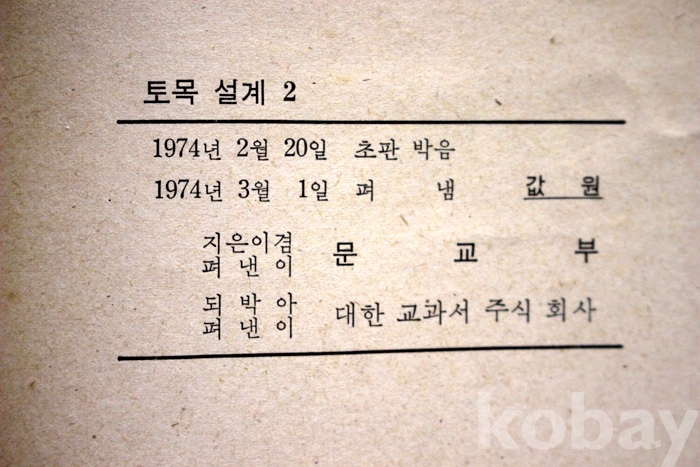 토목 설계 2
1974년 2월 20일 초판 박음
1974년 3월 1일 펴 냄 값 원
지은이겸
펴 낸 이 문 교 부
되 박 아
펴 낸 이 대한 교과서 주식 회사
kobay